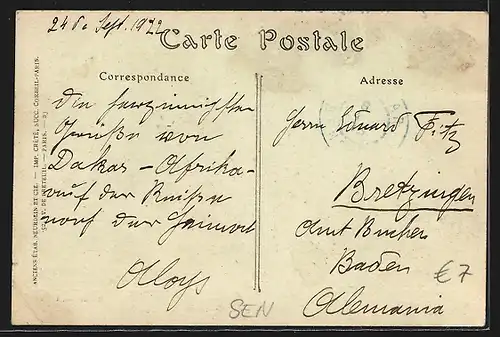 24 de Sept. 1922
Carte Postale
Correspondance
Die herzinnigsten
Grüße von
Dakar - Afrika -
auf der Reise
nach der Heimat
Aloys
Adresse
Herrn Eduard Fritz
Bretzingen
Amt Buchen
Baden
Alemania
€7
SEN
ANCIENS ÉTAB. NEURDEIN ET CIE. — IMP. CRÉTÉ, SUCC. CORBEIL-PARIS.
52, AV. DE BRETEUIL. — PARIS. —